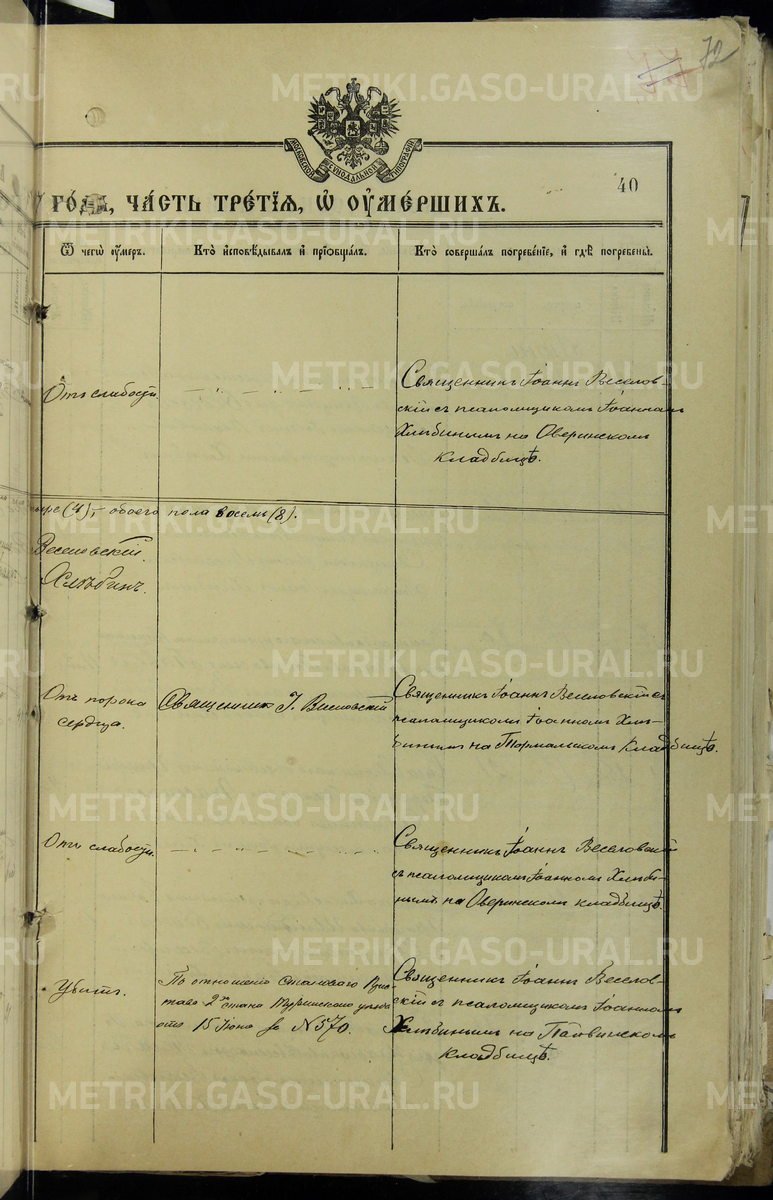 72
МОСКОВСКОЙ СѴНОДАЛЬНОЙ ТИПОГРАФІИ
40
ГОДА, ЧАСТЬ ТРЕТІЯ, Ѿ ОУМЕРШИХЪ.
Ѿ чегѡ оумеръ.
Кто исповѣдывалъ и пріѡбщалъ.
Кто совершалъ погребеніе, и гдѣ погребены.
Отъ слабости.
Священникъ Іоаннъ Веселов-
скій съ псаломщикомъ Іоанномъ
Хлѣбинымъ на Оверинскомъ
кладбищѣ.
(4), обоего пола восемь (8).
Веселовскій.
Хлѣбинъ.
Отъ порока
сердца.
Священник І. Веселовскій
Священникъ Іоаннъ Веселовскій съ
псаломщикомъ Іоанномъ Хлѣ-
бинымъ на кладбищѣ.
Отъ слабости.
Священникъ Іоаннъ Веселовскій
съ псаломщикомъ Іоанномъ Хлѣби-
нымъ на Оверинскомъ кладбищѣ.
Убитъ.
По отношению Становаго При-
става 2го стана Туринскаго уезда
отъ 15 Июня за №570.
Священникъ Іоаннъ Веселов-
скій съ псаломщикомъ Іоанномъ
Хлѣбинымъ на
кладбищѣ.
METRIKI.GASO-URAL.RU